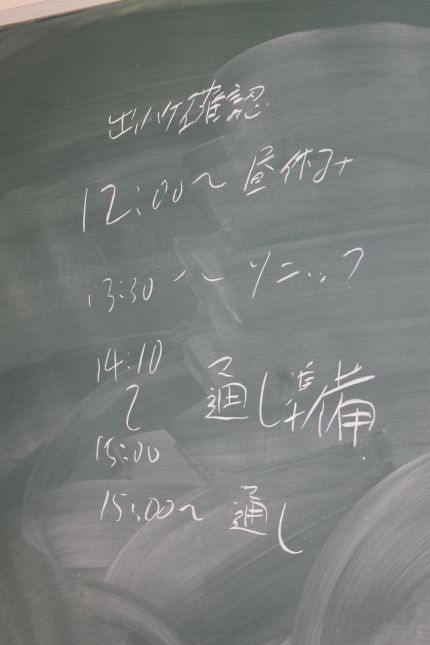 出ハケ確認
12:00〜 昼休み
13:30〜 ソニック
14:10
〜 通し準備
15:00
15:00〜 通し